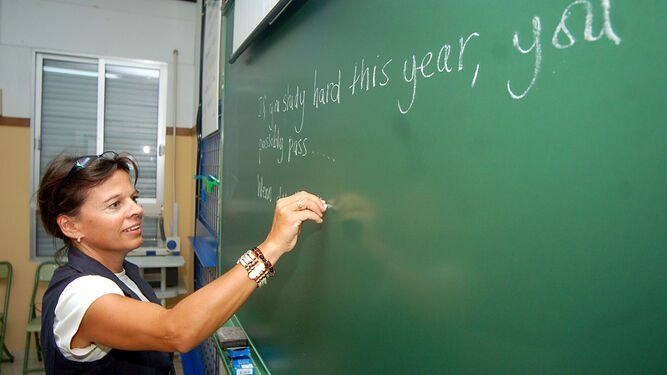 If you study hard this year, you
possibly pass .....